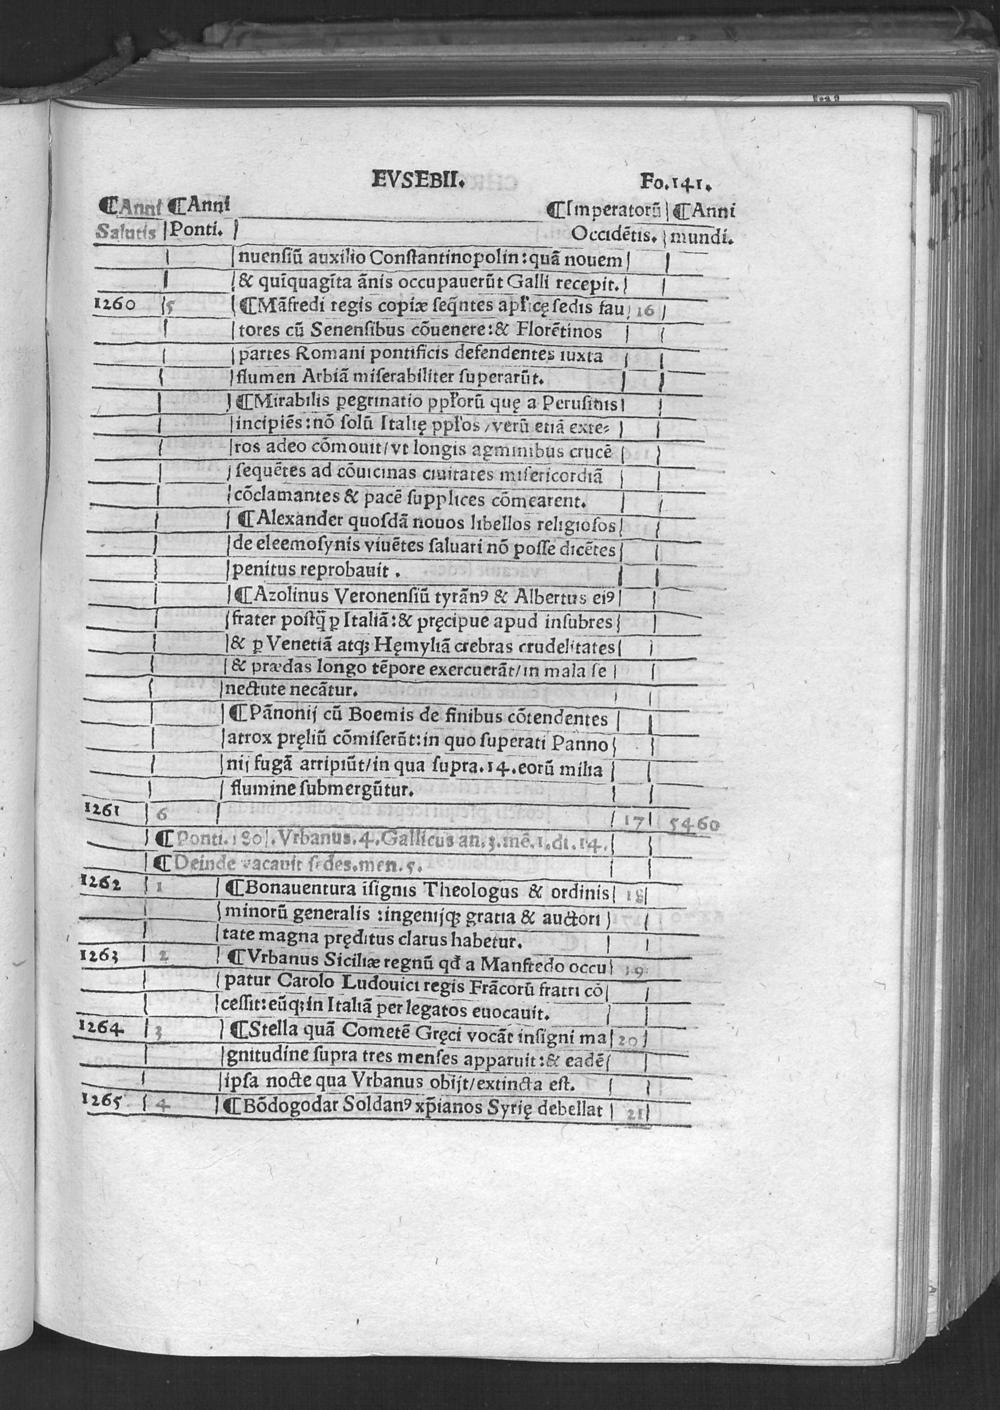 EVSEBII. Fo.141.
⁋Anni ⁋Anni ⁋Imperatorū ⁋Anni
Salutis Ponti. Occidētis. mundi.
nuensiū auxilio Constantinopolin:quā nouem
& quīquagīta ānis occupauerūt Galli recepit.
1260 5 ⁋Māfredi regis copiæ seq̄ntes apl'icę sedis fau 16
tores cū Senensibus cōuenere:& Florētinos
partes Romani pontificis defendentes iuxta
flumen Arbiā miserabiliter superarūt.
⁋Mirabilis pegrinatio ppl'orū quę a Perusinis
incipiēs:nō solū Italię ppl'os/verū etiā exte⸗
ros adeo cōmouit/vt longis agminibus crucē
sequētes ad cōuicinas ciuitates misericordiā
cōclamantes & pacē supplices cōmearent.
⁋Alexander quosdā nouos libellos religiosos
de eleemosynis viuētes saluari nō posse dicētes
penitus reprobauit .
⁋Azolinus Veronensiū tyrānꝰ & Albertus eiꝰ
frater postq̄ ꝑ Italiā:& pręcipue apud insubres
& ꝑ Venetiā atqꝫ Hęmyliā crebras crudelitates
& prædas longo tēpore exercuerāt/in mala se
nectute necātur.
⁋Pānonij cū Boemis de finibus cōtendentes
atrox pręliū cōmiserūt:in quo superati Panno
nij fugā arripiūt/in qua supra.14.eorū milia
flumine submergūtur.
1261 6 17 5460
⁋Ponti.180.Vrbanus.4.Gallicus an.3.mē.1.di.14.
⁋Deinde vacauit sedes.men.5.
1262 1 ⁋Bonauentura īsignis Theologus & ordinis 18
minorū generalis :ingenijqꝫ gratia & auctori
tate magna pręditus clarus habetur.
1263 2 ⁋Vrbanus Siciliæ regnū qđ a Manfredo occu 19
patur Carolo Ludouici regis Frācorū fratri cō
cessit:eūqꝫ in Italiā per legatos euocauit.
1264 3 ⁋Stella quā Cometē Gręci vocāt insigni ma 20
gnitudine supra tres menses apparuit:& eadē
ipsa nocte qua Vrbanus obijt/extincta est.
1265 4 ⁋Bōdogodar Soldanꝰ xp̄ianos Syrię debellat 21